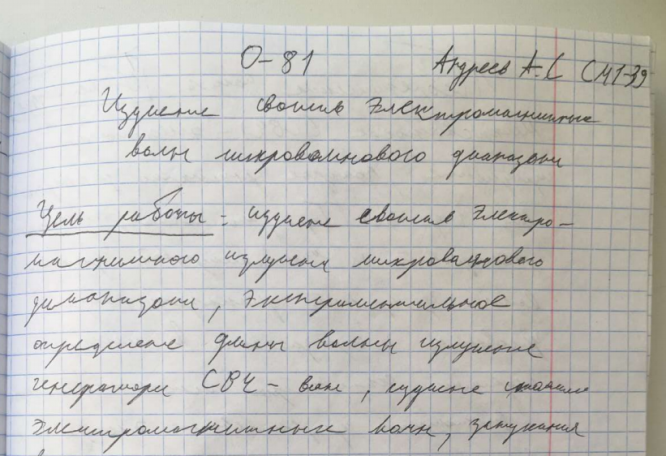 О-81 Андреев А.С СМ1-39
Изучение свойств электромагнитных
волн микроволнового диапазона
Цель работы: изучение свойств электро-
магнитного излучения микроволнового
диапазона, экспериментальное
определение длины волны излучения
генератора СВЧ-волн, изучение
электромагнитных волн, затухания